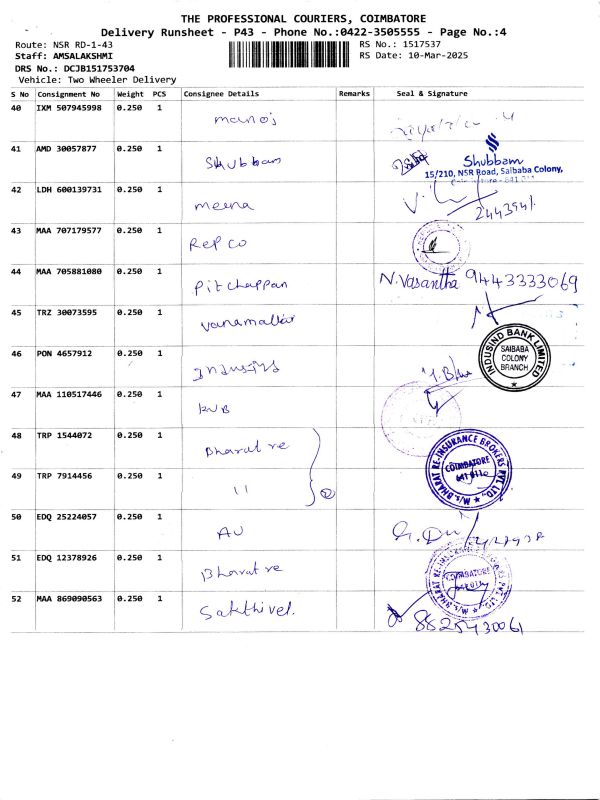 THE PROFESSIONAL COURIERS, COIMBATORE
Delivery Runsheet - P43 - Phone No.:0422-3505555 - Page No.:4
Route: NSR RD-1-43
RS No.: 1517537
Staff: AMSALAKSHMI
RS Date: 10-Mar-2025
DRS No.: DCJB151753704
Vehicle: Two Wheeler Delivery
S No Consignment No Weight PCS Consignee Details Remarks Seal & Signature
40 IXM 507945998 0.250 1 manoj
41 AMD 30057877 0.250 1 Shubham
Shubbam
15/210, NSR Road, Saibaba Colony,
Coimbatore - 641 011
42 LDH 600139731 0.250 1 meena
43 MAA 707179577 0.250 1 Repco
44 MAA 705881080 0.250 1 Pitchappan N.Vasantha 9443333069
45 TRZ 30073595 0.250 1 vanamallar
46 PON 4657912 0.250 1
INDUSIND BANK LIMITED
SAIBABA
COLONY
BRANCH
47 MAA 110517446 0.250 1 KVB
48 TRP 1544072 0.250 1 Bharat re
M/s. BHARAT RE-INSURANCE BROKERS PVT. LTD.
COIMBATORE
641 011
49 TRP 7914456 0.250 1 11 2
50 EDQ 25224057 0.250 1 AU
51 EDQ 12378926 0.250 1 Bharat re
M/s. BHARAT RE-INSURANCE BROKERS PVT. LTD.
COIMBATORE
641 011
52 MAA 869090563 0.250 1 Sakthivel. 8825430061